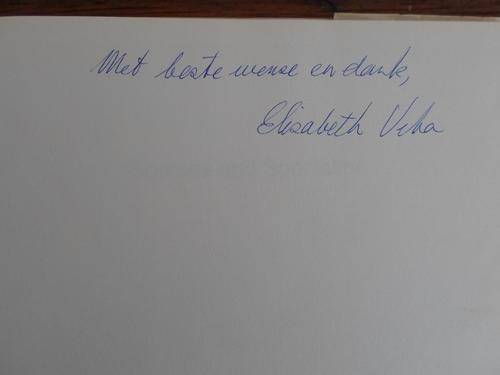 Met beste wense en dank,
Elisabeth